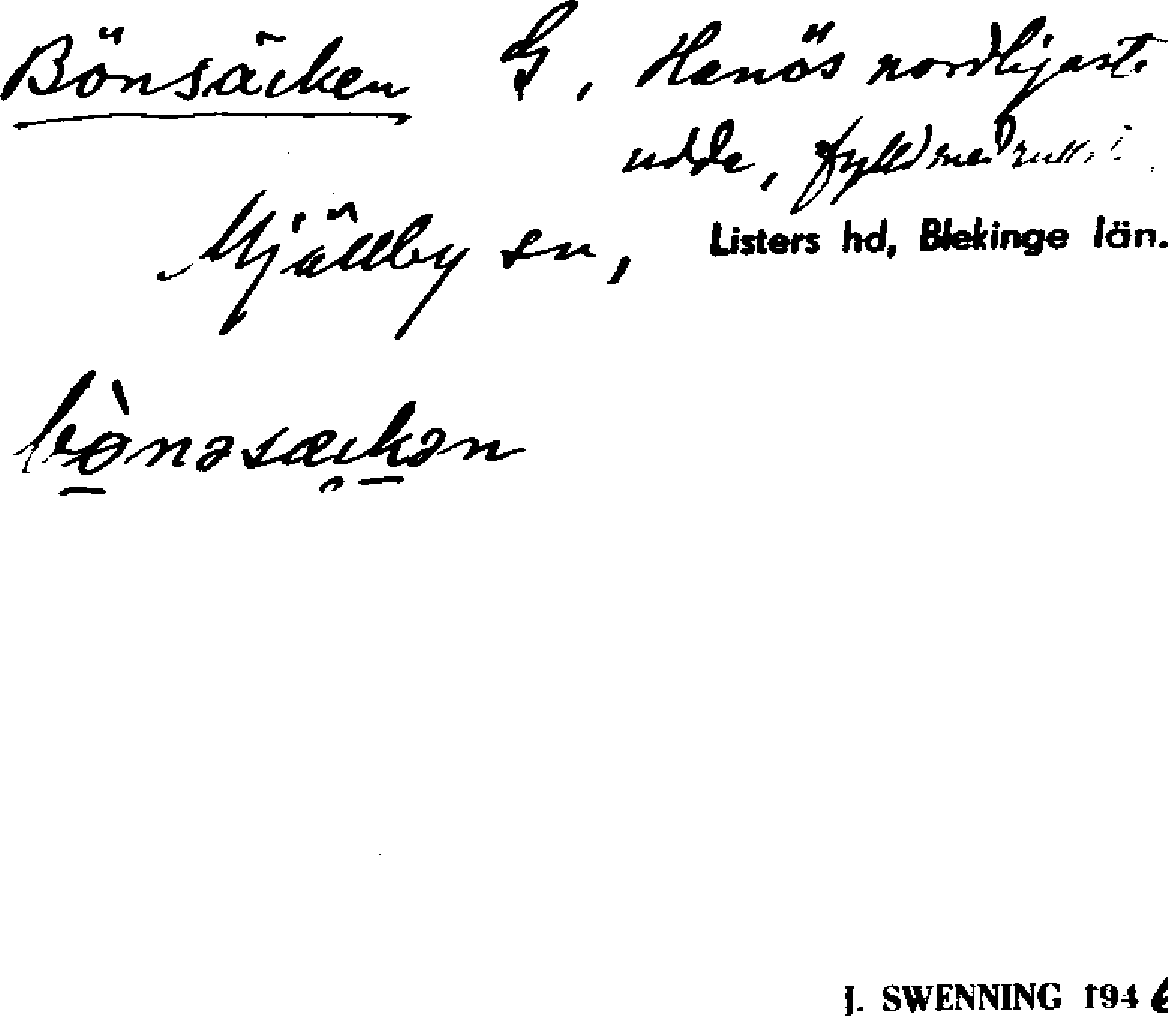 Bönsäcken G, Hanös nordligaste
udde, fylld med
Mjällby sn, Listers hd, Blekinge län.
bø̀nəsæckən
J. SWENNING 1946